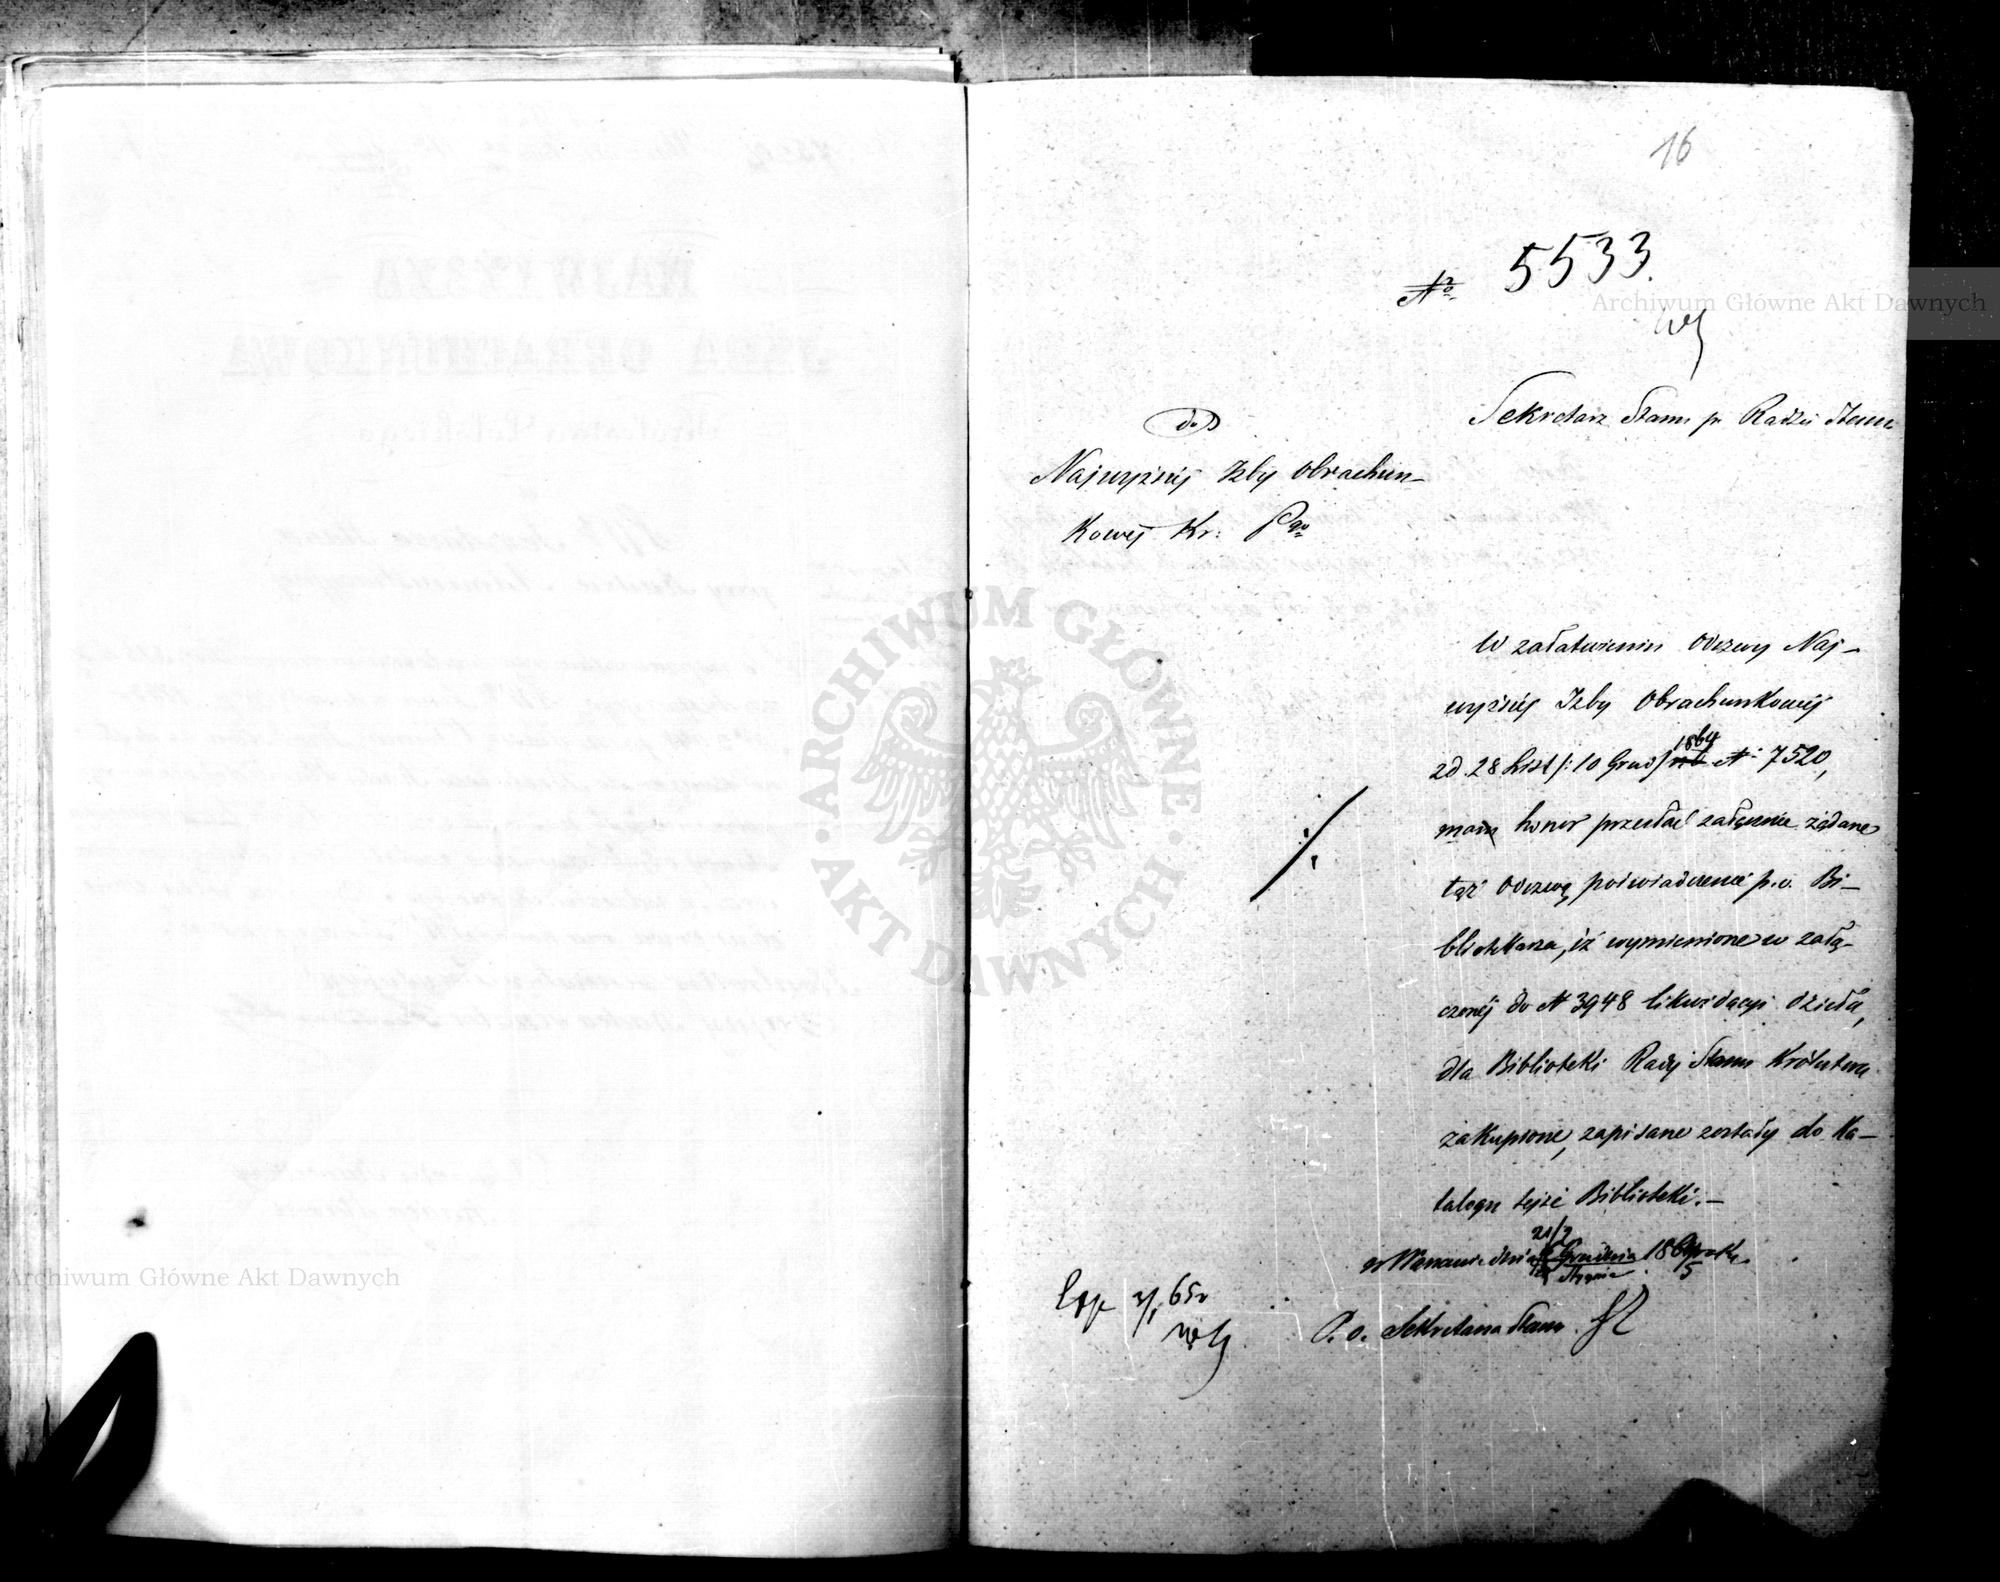 16
No 5533.
Sekretarz Stanu pr Radzie Stanu
do
Najwyższej Izby Obrachun-
kowej Kr: Pgo
W załatwieniu Odezwy Naj-
wyższej Izby Obrachunkowej
zd. 28 List /: 10 Grud/ 1864 N 7520,
mam honor przesłać załączenie żądane
tąż Odezwą poświadczenie p.o. Bi-
bliotekarza, iż wymienione w załą-
czonej do N 3948 likwidacyi dzieła,
dla Biblioteki Rady Stanu Królestwa
zakupione, zapisane zostały do Ka-
talogu tejże Biblioteki.—
21/2
w Warszawie dnia Grudnia 186 roku
Stycznia 5
P. o. Sekretarza Stanu
3/1 65r
Archiwum Główne Akt Dawnych
ARCHIWUM GŁÓWNE AKT DAWNYCH
Archiwum Główne Akt Dawnych